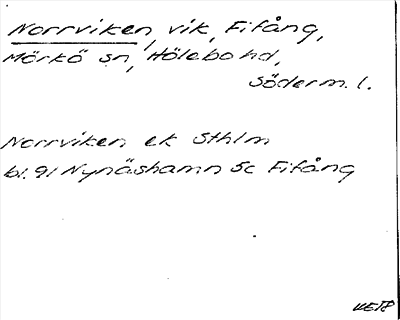 Norrviken, vik, Fifång,
Mörkö sn, Hölebo hd,
Söderm. l.
Norrviken ek Sthlm
bl. 91 Nynäshamn Sc Fifång